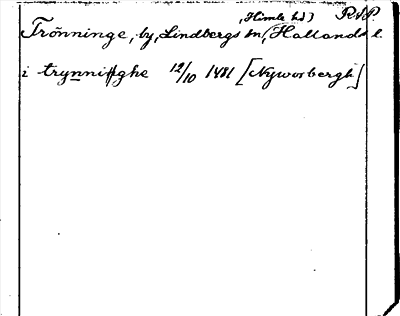 (Himle hd) RAP.
Trönninge, by, Lindbergs sn, Hallands l.
i trynninghe 12/10 1481 [Nyworbergh]